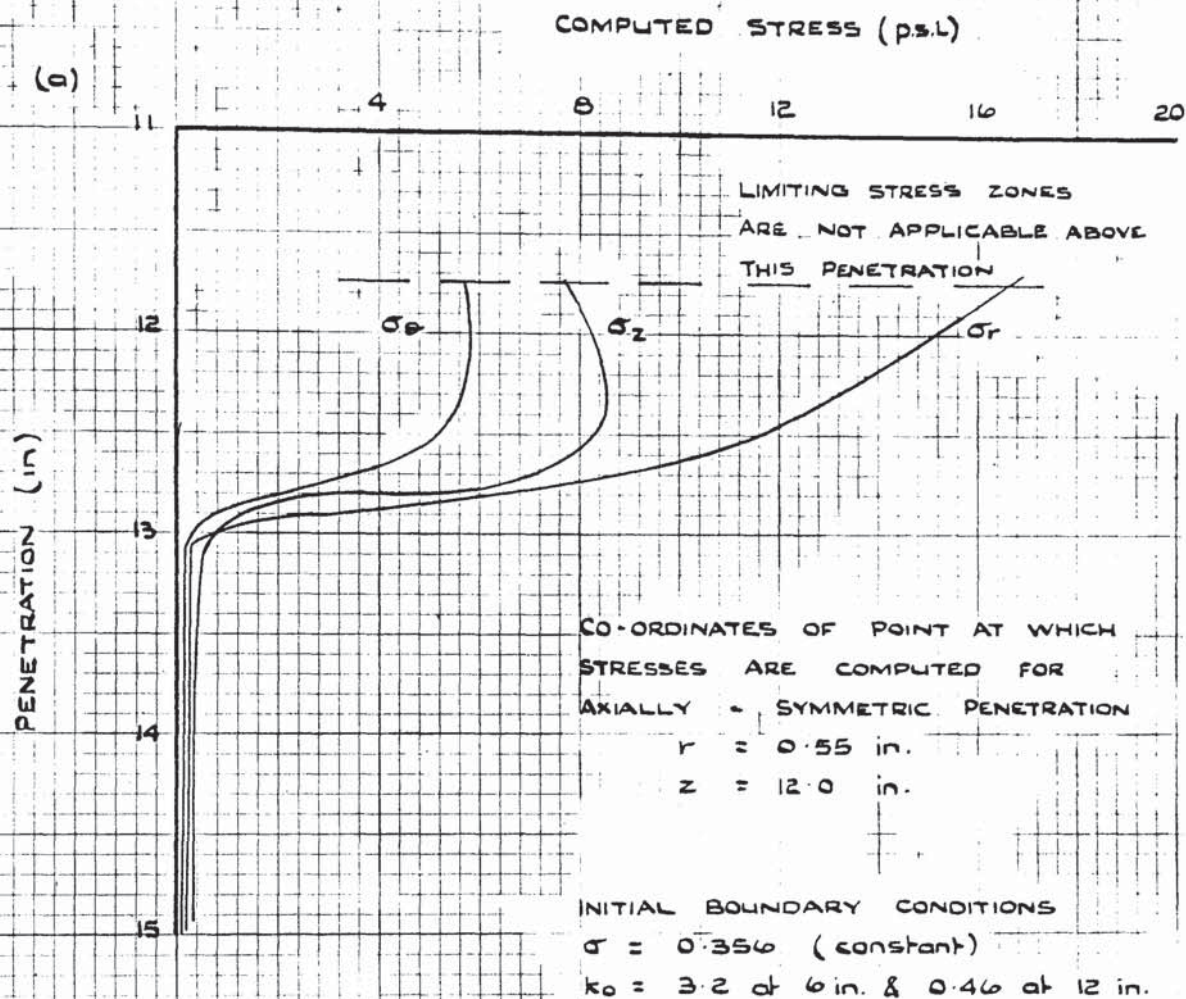 COMPUTED STRESS (p.s.i.)
(a)
4 8 12 16 20
11
LIMITING STRESS ZONES
ARE NOT APPLICABLE ABOVE
THIS PENETRATION
12
σθ
σz
σr
PENETRATION (in)
13
CO-ORDINATES OF POINT AT WHICH
STRESSES ARE COMPUTED FOR
AXIALLY - SYMMETRIC PENETRATION
r = 0.55 in.
14
z = 12.0 in.
INITIAL BOUNDARY CONDITIONS
15
σ = 0.356 (constant)
k₀ = 3.2 at 6 in. & 0.46 at 12 in.